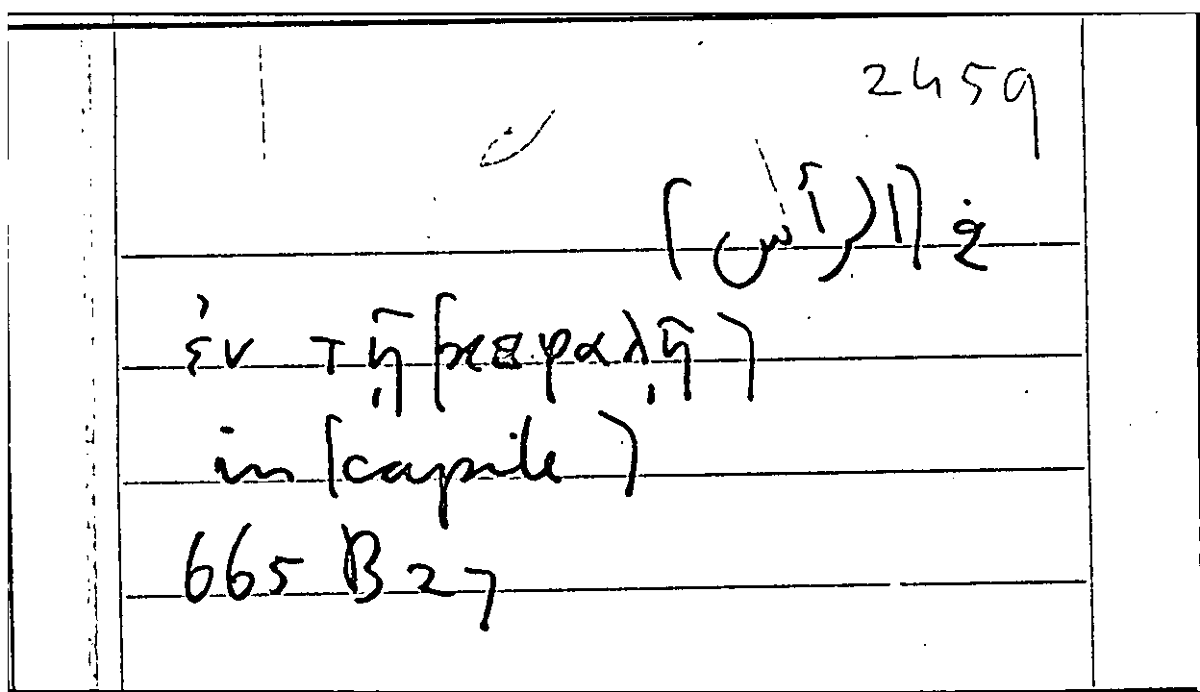 2459
في (الرأس)
ἐν τῇ (κεφαλῇ)
in (capite)
665 B 27